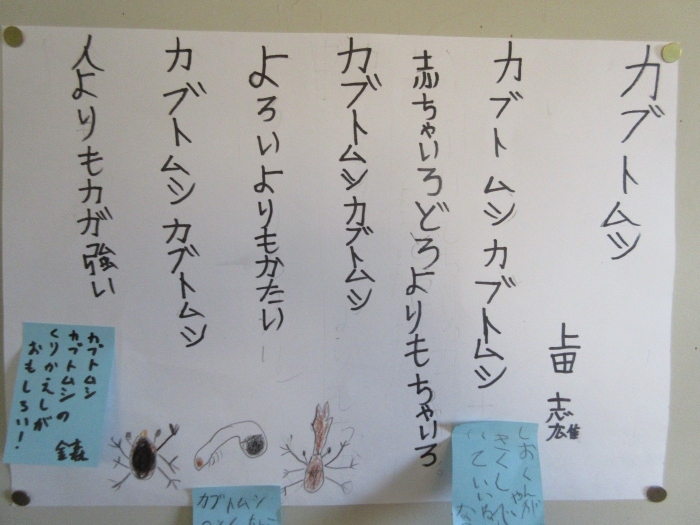 カブトムシ
上田 志雄
カブトムシカブトムシ
赤ちゃいろどろよりもちゃいろ
カブトムシカブトムシ
よろいよりもかたい
カブトムシカブトムシ
人よりも力が強い
しおくんが
カブトムシ
カブトムシ
カブトムシの
くりかえしが
おもしろい!